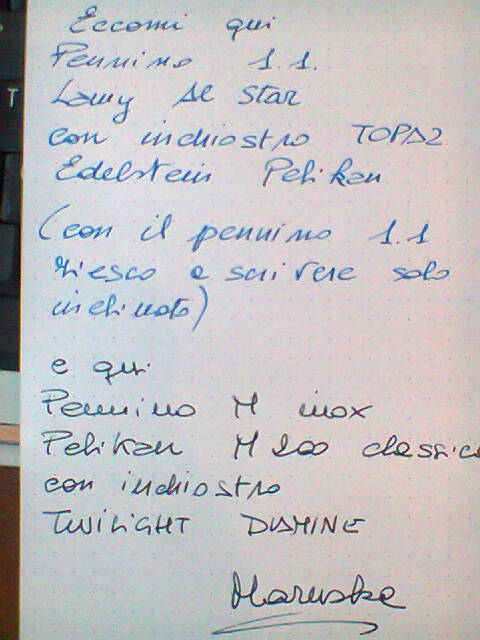 Eccomi qui
Pennino 1.1.
Lamy Al Star
con inchiostro TOPAZ
Edelstein Pelikan
(con il pennino 1.1
riesco a scrivere solo
inclinato)
e qui
Pennino M inox
Pelikan M 200 classic
con inchiostro
TWILIGHT DIAMINE
Maruska
T